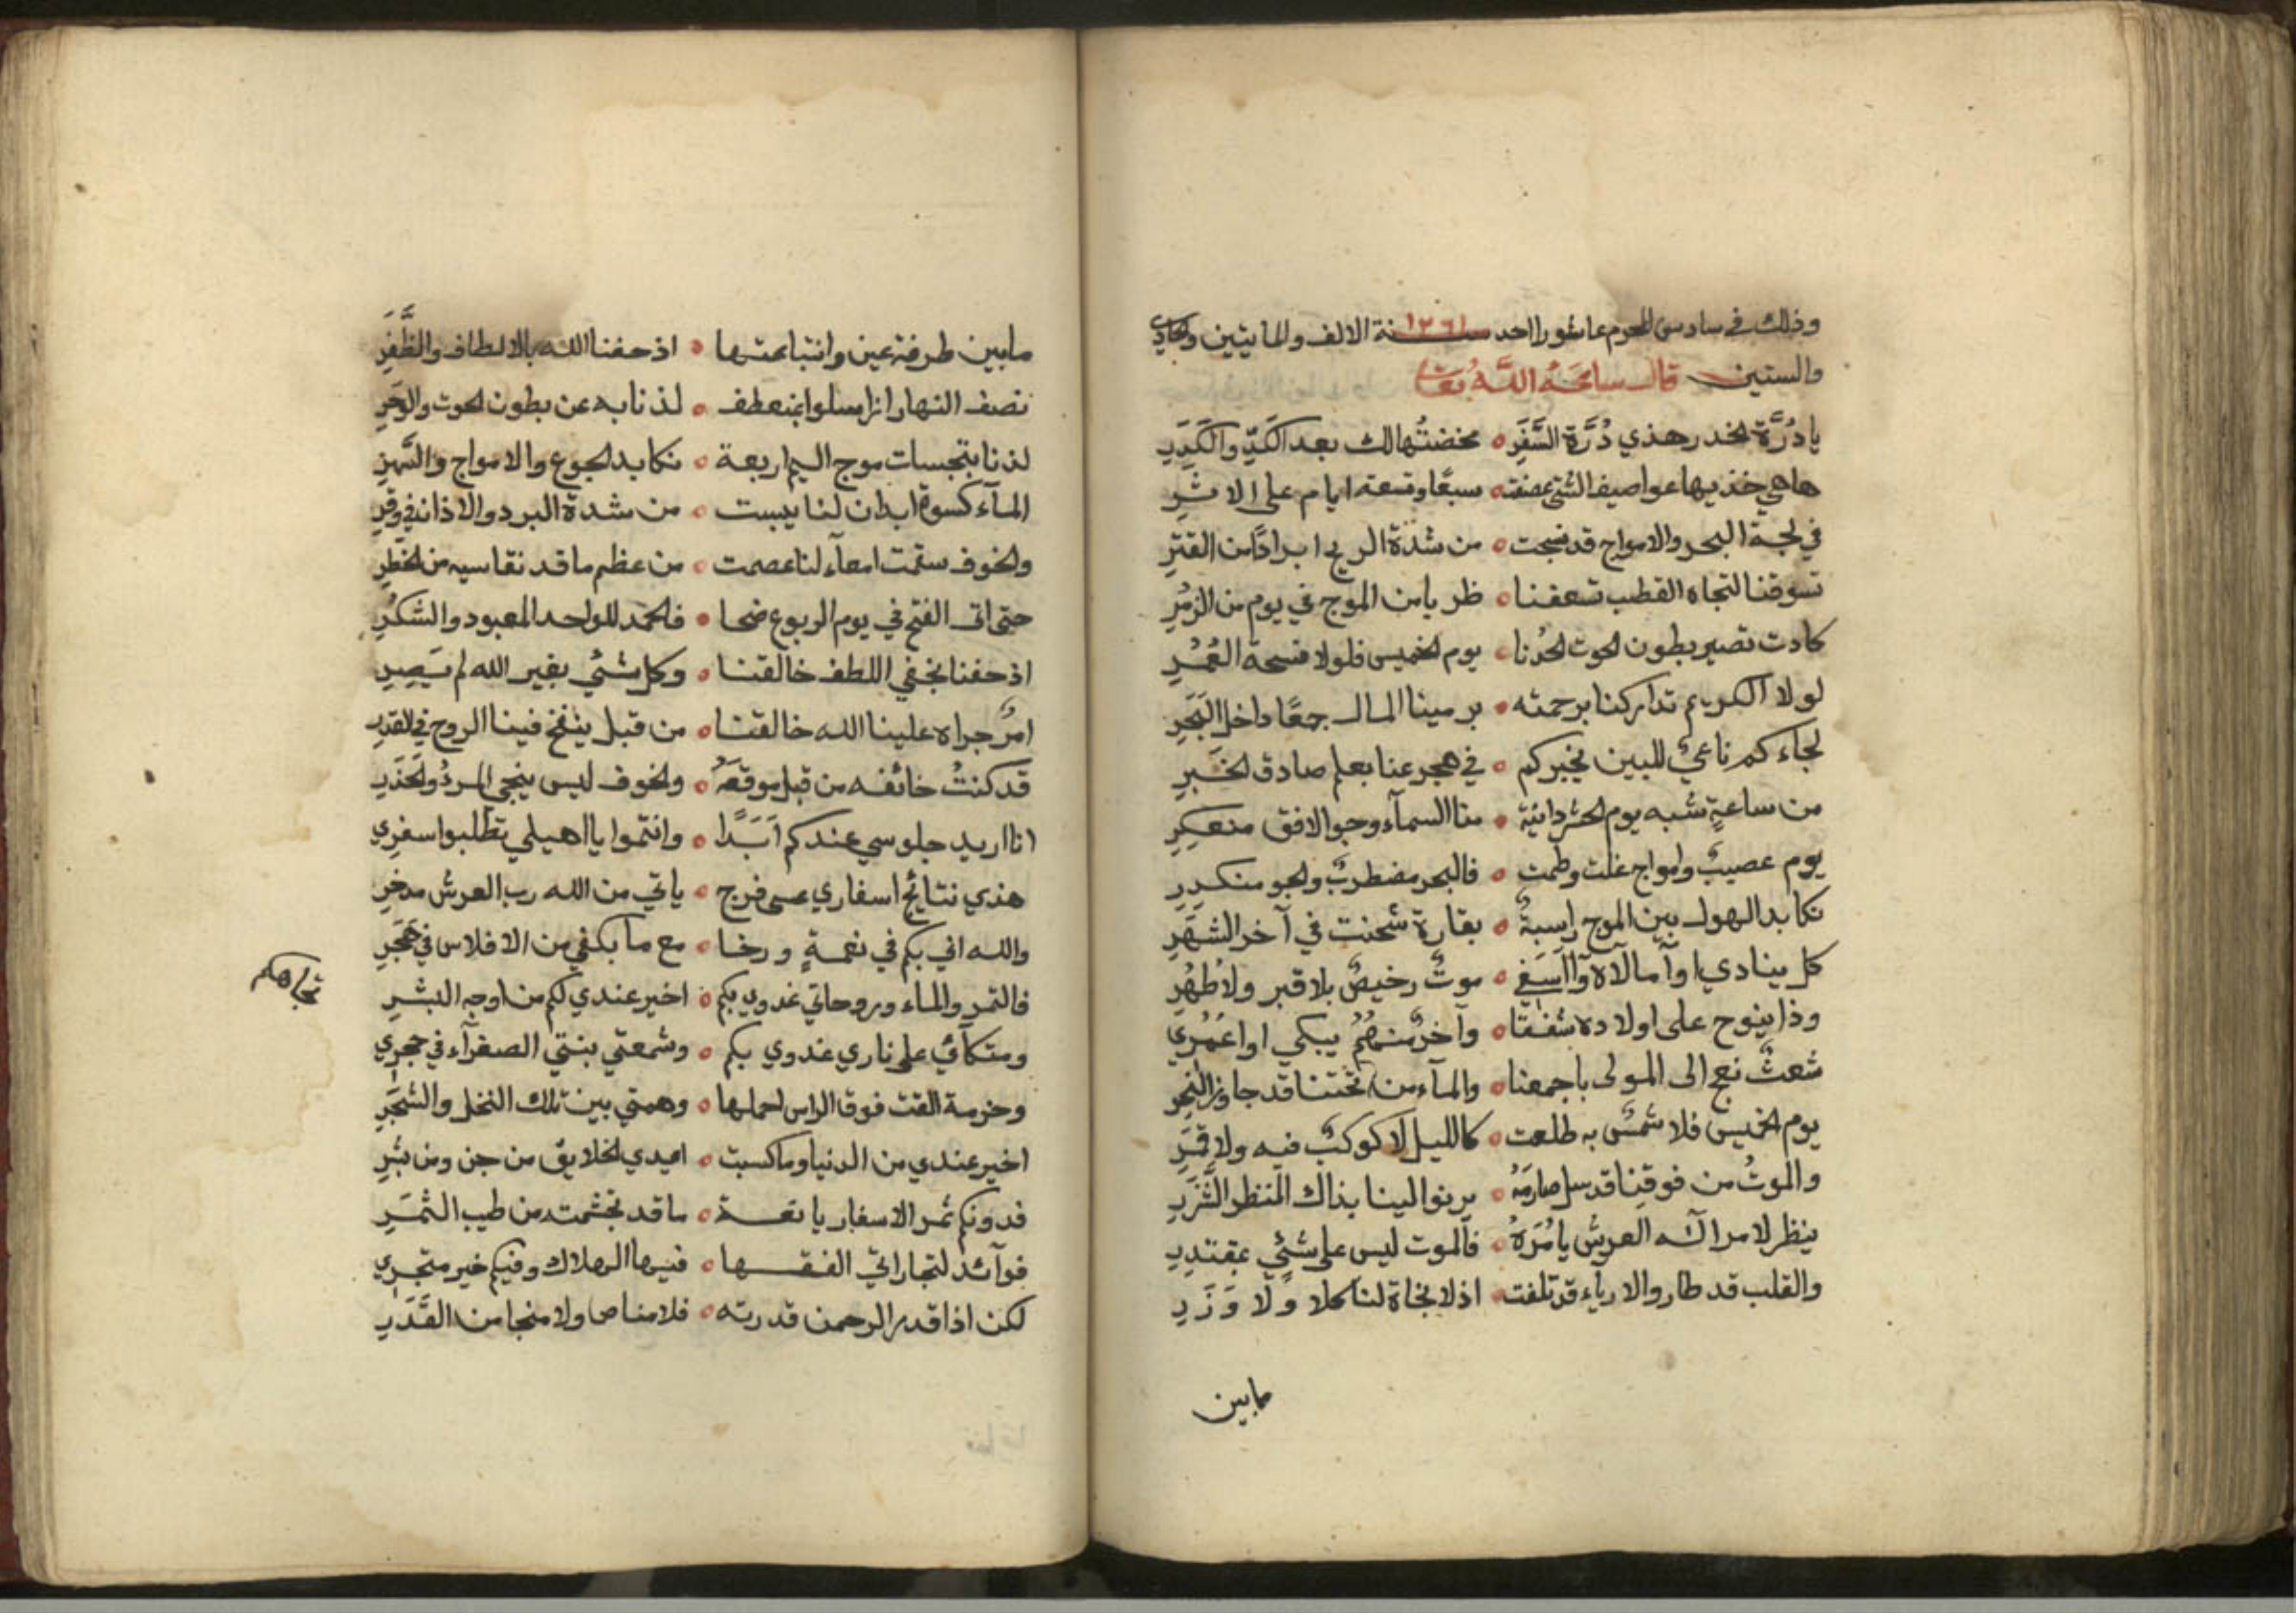 وذلك في سادس المحرم عاشورا احد سنة ١٢٦١ الالف والمايتين والحادي
والستين قال سامحه الله تعا
يا دُرَّة الخدر هذي دُرَّة السَّفَرِ ۰ مخضتُها لك بعد الكدّ والكَدَرِ
هاهي خذيها عواصيف الشتي عصفته ۰ سبعًا وتسعة ايام على الاثر
في لجة البحر والامواج قد نسجت ۰ من شدة الريح ابرادًا من القتر
تسوقنا لتجاه القطب تسعفنا ۰ ظربا من الموج في يوم من الزمر
كادت تصير بطون الحوت لحُدنا ۰ يوم الخميس فلولا فسحة العُمُر
لولا الكريم تداركنا برحمته ۰ برمينا المال جمعًا داخل البَحَرِ
لجاءكم ناعيٌ للبين يخبركم ۰ في هجر عنا بعلم صادق الخبَرِ
من ساعةٍ شبه يوم الحشر دانيَة ۰ منا السمآء وجو الافق منعكِرِ
يوم عصيبٌ وامواج غلت وطمت ۰ فالبحر مضطربٌ والجو منكدِرِ
نكابد الهول بين الموج راسبةٌ ۰ بقارة شحنت في آخر الشهَرِ
كل ينادي اوآ مالآه وآ اسَفي ۰ موتٌ رخيصٌ بلا قبر ولا طُهُرِ
وذا ينوح على اولاده شفقًا ۰ وآخرٌ منهُمُ يبكي اوا عُمُري
شعثٌ نعج الى المولى باجمعنا ۰ والمآء من تحتنا قد جاوز النحر
يوم الخميس فلا شمسٌ به طلعت ۰ كالليل لا كوكبٌ فيه ولا قمَرِ
والموتُ من فوقنا قد سل صارمَهُ ۰ يرنوا الينا بذاك المنظر الشَّزَرِ
ينظر لامر اله العرش يامُرَهُ ۰ فالموت ليس على شئيٍ بمقتدِرِ
والقلب قد طار والارياء قد تلفت ۰ اذ لا نجاة لنا كلا ولا وَزَرِ
مابين
مابين طرفة عين وانتباعتها ۰ اذ حفنا الله بالالطاف والظَّفَرِ
نصف النهار انزاسلوا بمنعطف ۰ لذنا به عن بطون الحوت والوَحَرِ
لذنا بتجسات موج اليم اربعة ۰ نكابد الجوع والامواج والسَّهَرِ
المآء كسوة ابدان لنا يبست ۰ من شدة البرد والاذان في وقرِ
والخوف ستمت امعآء لنا عصمت ۰ من عظم ما قد نقاسيه من الخطَرِ
حتى اتى الفتح في يوم الربوع ضحا ۰ فالحمد للواحد المعبود والشكُرِ
اذ حفنا بخفي اللطف خالقنا ۰ وكل شئيٍ بغير الله لم يَصِرِ
امرٌ جراه علينا الله خالقنا ۰ من قبل ينفخ فينا الروح في القدرِ
قد كنتُ خائفه من قبل موقعَهُ ۰ والخوف ليس ينجي المردُ والحَذَرِ
انا اريد جلوسي عندكم اَبَدًا ۰ وانتموا يا اهيلي تطلبوا سفري
هذي نتائج اسفاري عسى فرج ۰ ياتي من الله رب العرش مدخرِ
والله اني بكم في نعمةٍ ورخا ۰ مع ما بكفي من الافلاس في هَجَرِ
فالتمر والماء وروحاتي غدوي بكم ۰ اخير عندي لكم من اوجه البشَرِ
تجاهكم
ومتكآئي على ناري غدوي بكم ۰ وشمعتي بنتي الصفرآء في حجري
وحزمة القت فوق الراس احملها ۰ وهمتي بين تلك النخل والشَجَرِ
اخير عندي من الدنيا وما كسبت ۰ ايدي الخلايق من جن ومن بشرِ
فدونكم ثمر الاسفار يا نعـة ۰ ما قد تجشمته من طيب الثمَرِ
فوآئد لتجاراتي الفقـها ۰ فيها الهلاك وفيكم خير متجري
لكن اذا قدر الرحمن قدرته ۰ فلا مناص ولا منجا من القَدَرِ